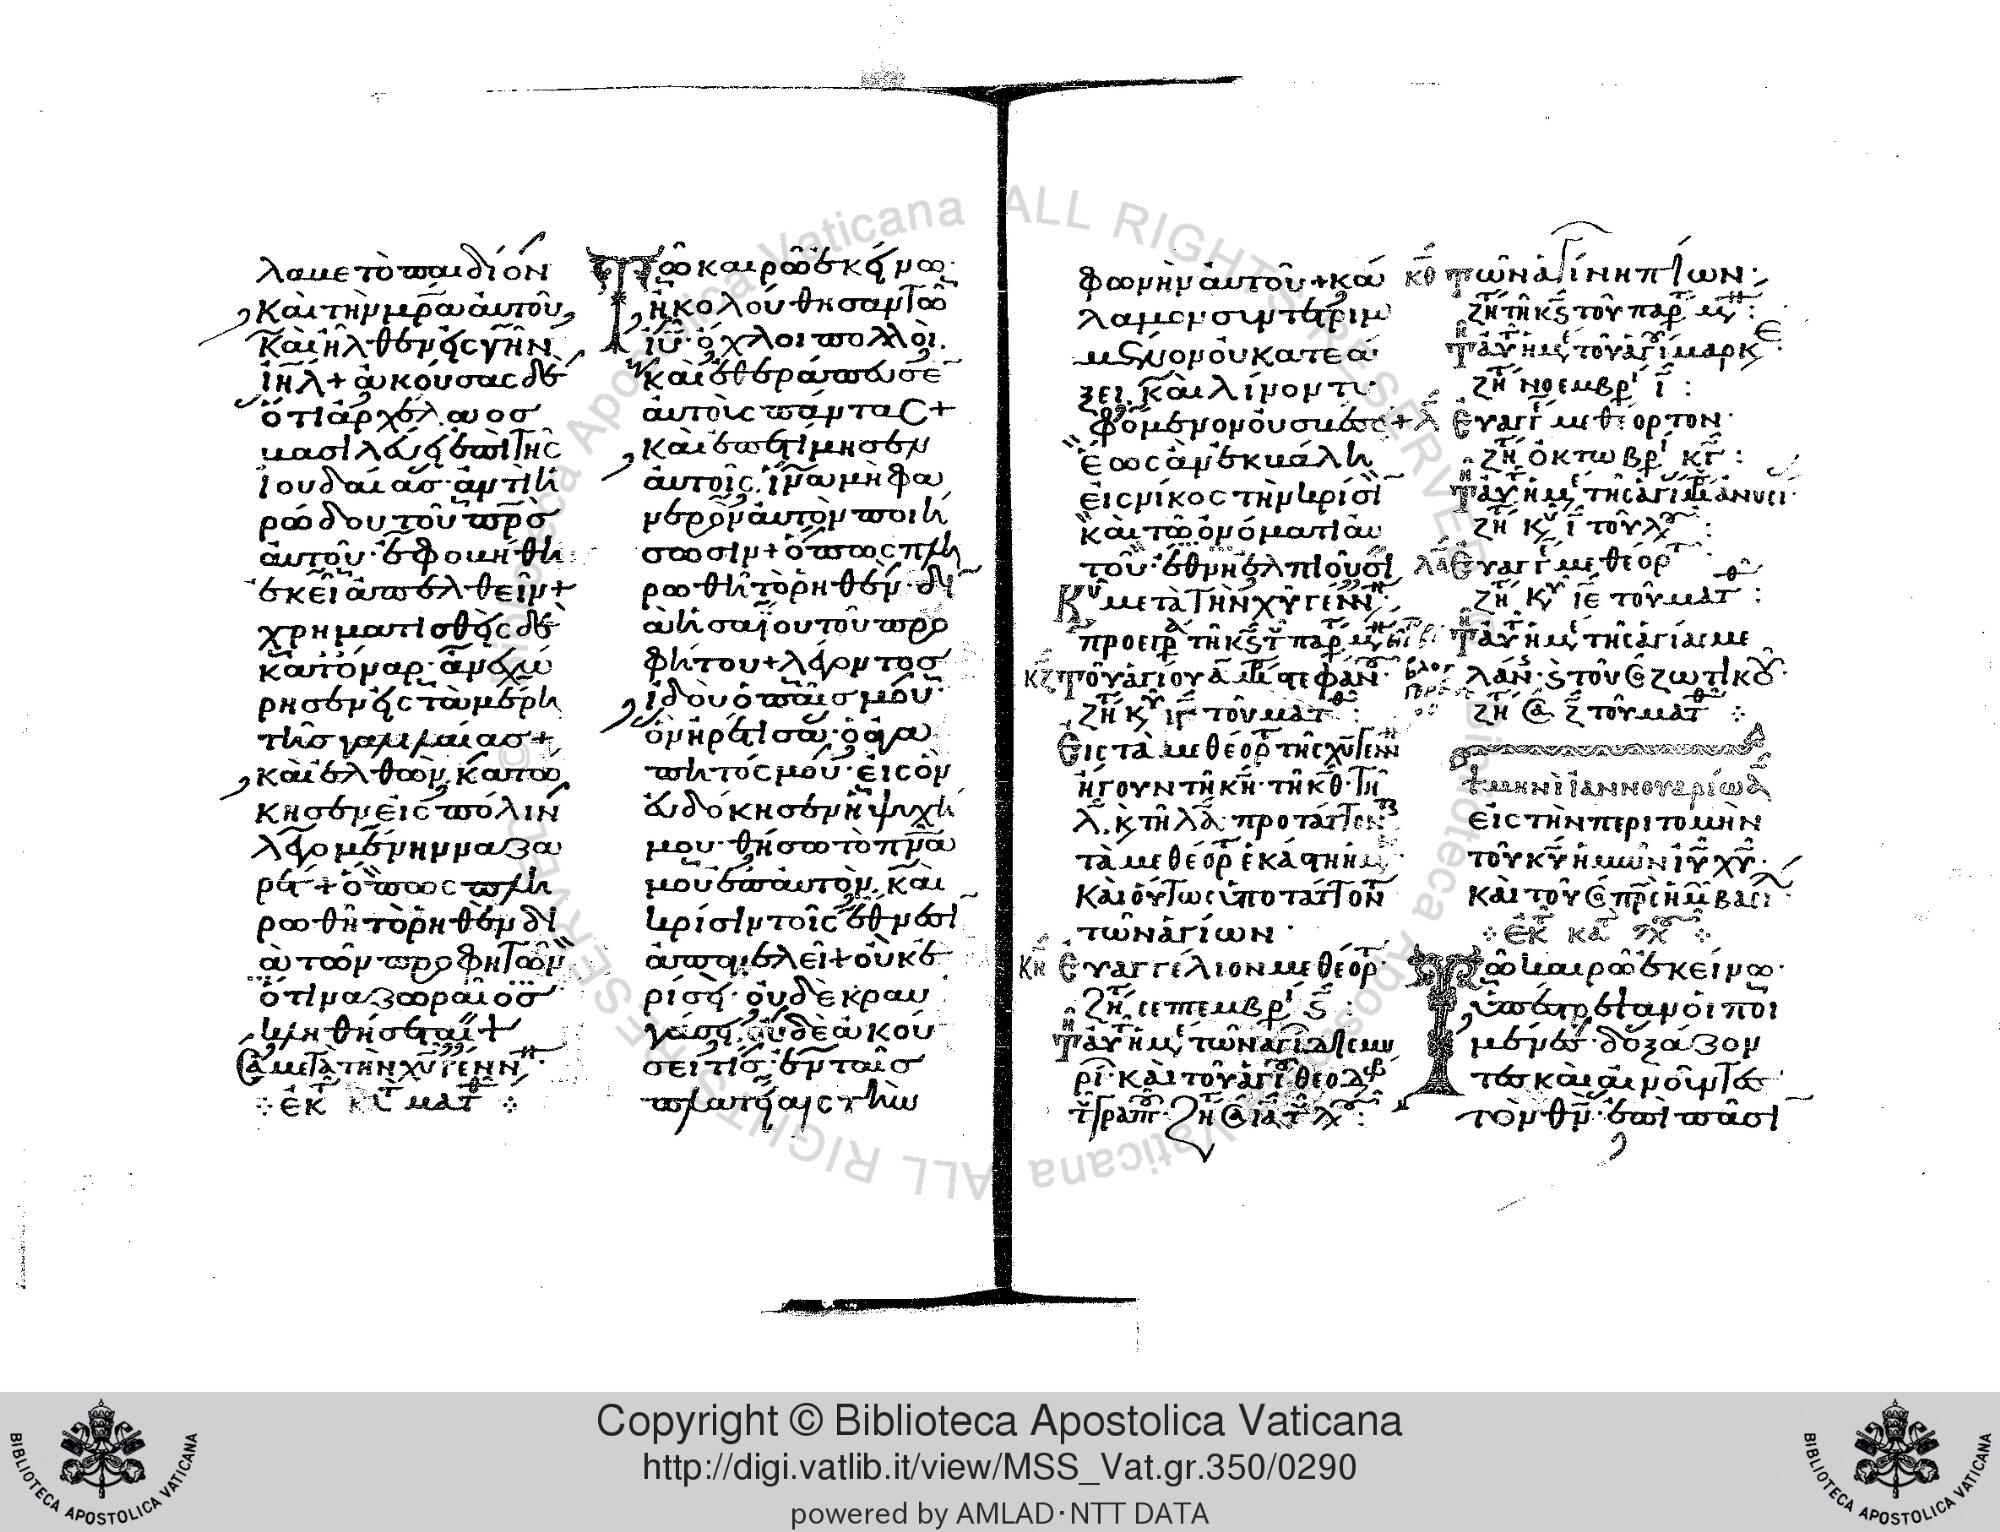 λαμε τὸ παιδίον
καὶ τὴν μρ̅α αὐτοῦ,
καὶ ἦλθεν εἰς γῆν
ιη̅λ + ἀκούσας δὲ
ὅτι ἀρχέλαος
βασιλεύει ἐπὶ τῆς
ἰουδαίας· ἀντὶ ἡ
ρώδου τοῦ πρ̅ς
αὐτοῦ· ἐφοβήθη
ἐκεῖ ἀπελθεῖν +
χρηματισθεὶς δὲ
κατόναρ· ἀνεχώ
ρησεν εἰς τὰ μέρη
τῆς γαλιλαίας +
καὶ ἐλθὼν κατώ
κησεν εἰς πόλιν
λεγομένην ναζα
ρέτ + ὅπως πλη
ρωθῆ τὸ ρηθὲν δι
ὰ τῶν προφητῶν
ὅτι ναζωραῖος
κληθήσεται +
μετὰ τὴν χυ̅ γένν
ἐκ κατ ματθ
Τῶ καιρῶ ἐκείνω·
ἠκολούθησαν τῶ
ιυ̅ ὄχλοι πολλοὶ.
καὶ ἐθεράπευσε
αὐτοὺς πάντας +
καὶ ἐπετίμησεν
αὐτοῖς, ἵνα μὴ φα
νερὸν αὐτὸν ποιή
σωσιν + ὅπως πλη
ρωθῆ τὸ ρηθὲν δι
ὰ ἡσαΐου τοῦ προ
φήτου + λέγοντος
ἰδοὺ ὁ παῖς μου
ὃν ἠρέτισα· ὁ ἀγα
πητός μου· εἰς ὃν
εὐδόκησεν ἡ ψυχή
μου· θήσω τὸ πν̅α
μου ἐπ αὐτὸν, καὶ
κρίσιν τοῖς ἔθνεσι
ἀπαγγελεῖ + οὐκ ἐ
ρίσει· οὐδὲ κραυ
γάσει, οὐδὲ ἀκού
σει τίς· ἐν ταῖς
πλατείαις τὴν
φωνὴν αὐτοῦ + κά
λαμον συντετριμ
μένον οὐ κατεά
ξει, καὶ λίνον τυ
φόμενον οὐ σβέσει +
ἕως ἂν ἐκβάλη
εἰς νῖκος τὴν κρίσι
καὶ τῶ ὀνόματι αὐ
τοῦ· ἔθνη ἐλπιοῦσι
Κυ μετὰ τὴν χυ̅ γένν
προειρ τῆ κϛ τ παρ μην
κζ Τοῦ ἁγίου α μ στεφαν
ζη κυ ιγ τοῦ ματθ :
Εἰς τὰ μεθεορτ τῆς χυ̅ γενν
ἤγουν τῆ κη· τῆ κθ· τῆ
λ, κ τῆ λα· προταττον
τὰ μεθεορτ ἑκάστη ημ
καὶ οὕτως ὑποταττον
τῶν ἁγίων·
κη Εὐαγγέλιον μεθεορτ·
ζη σεπτεμβρ ϛ :
Τ αυ ημ
ρι· καὶ τοῦ ἁγι θεοδ
κθ Τῶν ἁγι νηπίων·
ζητ τῆ κϛ τοῦ παρ μην :
Τ αυτ ημ τοῦ ἁγι μαρκ
ζη νοεμβρ ι :
λ Εὐαγγ μεθέορτον·
ζη ὀκτωβρ κγ :
Τ αυτ ημ τῆς ἁγι
ζη κυ ι τοῦ λχ :
λα Εὐαγγ μεθεορτ
ζη κυ ιε τοῦ ματθ :
Τ αυτ ημ τῆς ἁγίας με
λάν· ϛ τοῦ ζωτικου
ζη ζ τοῦ ματθ
+ μηνὶ ἰαννουαρίω α
εἰς τὴν περιτομὴν
τοῦ κυ̅ ἡμῶν ιυ̅ χυ̅·
καὶ τοῦ πρς ἡμ βασι
ἐκ κατ λχ
Τῶ καιρῶ ἐκείνω·
ὑπέστρεψαν οἱ ποι
μένες· δοξάζον
τες καὶ αἰνοῦντες
τὸν θν̅· ἐπὶ πᾶσι
Copyright © Biblioteca Apostolica Vaticana
http://digi.vatlib.it/view/MSS_Vat.gr.350/0290
powered by AMLAD·NTT DATA
BIBLIOTECA APOSTOLICA VATICANA
BIBLIOTECA APOSTOLICA VATICANA
© Biblioteca Apostolica Vaticana ALL RIGHTS RESERVED
© Biblioteca Apostolica Vaticana ALL RIGHTS RESERVED